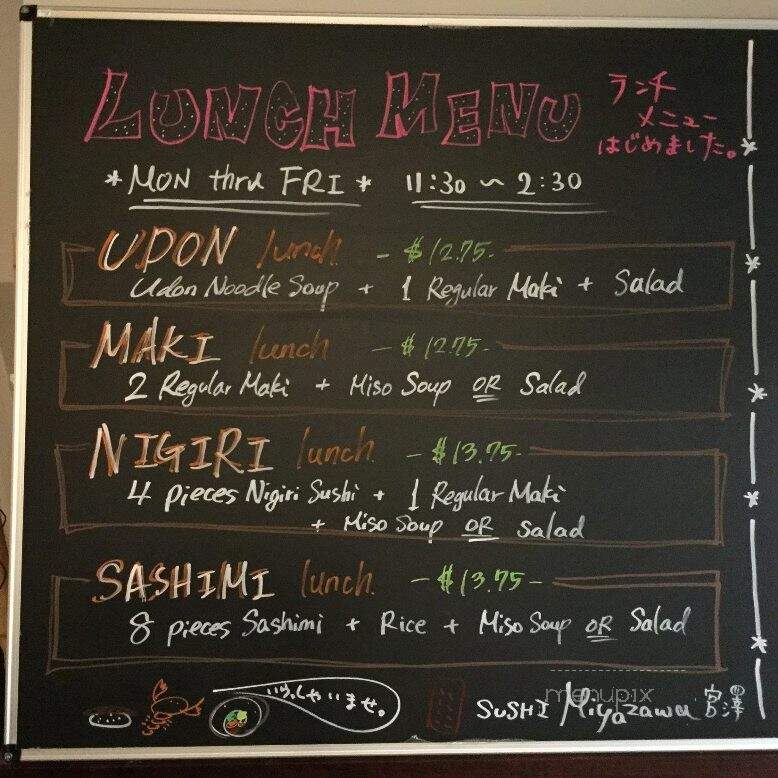 LUNCH MENU
ランチ
メニュー
はじめました。
* MON thru FRI * 11:30 ~ 2:30
UDON lunch - $12.75-
Udon Noodle Soup + 1 Regular Maki + Salad
MAKI lunch - $12.75-
2 Regular Maki + Miso Soup OR Salad
NIGIRI lunch - $13.75-
4 pieces Nigiri Sushi + 1 Regular Maki
+ Miso Soup OR Salad
SASHIMI lunch - $13.75-
8 pieces Sashimi + Rice + Miso Soup OR Salad
いらっしゃいませ。
menupix
SUSHI Miyazawa 宮澤